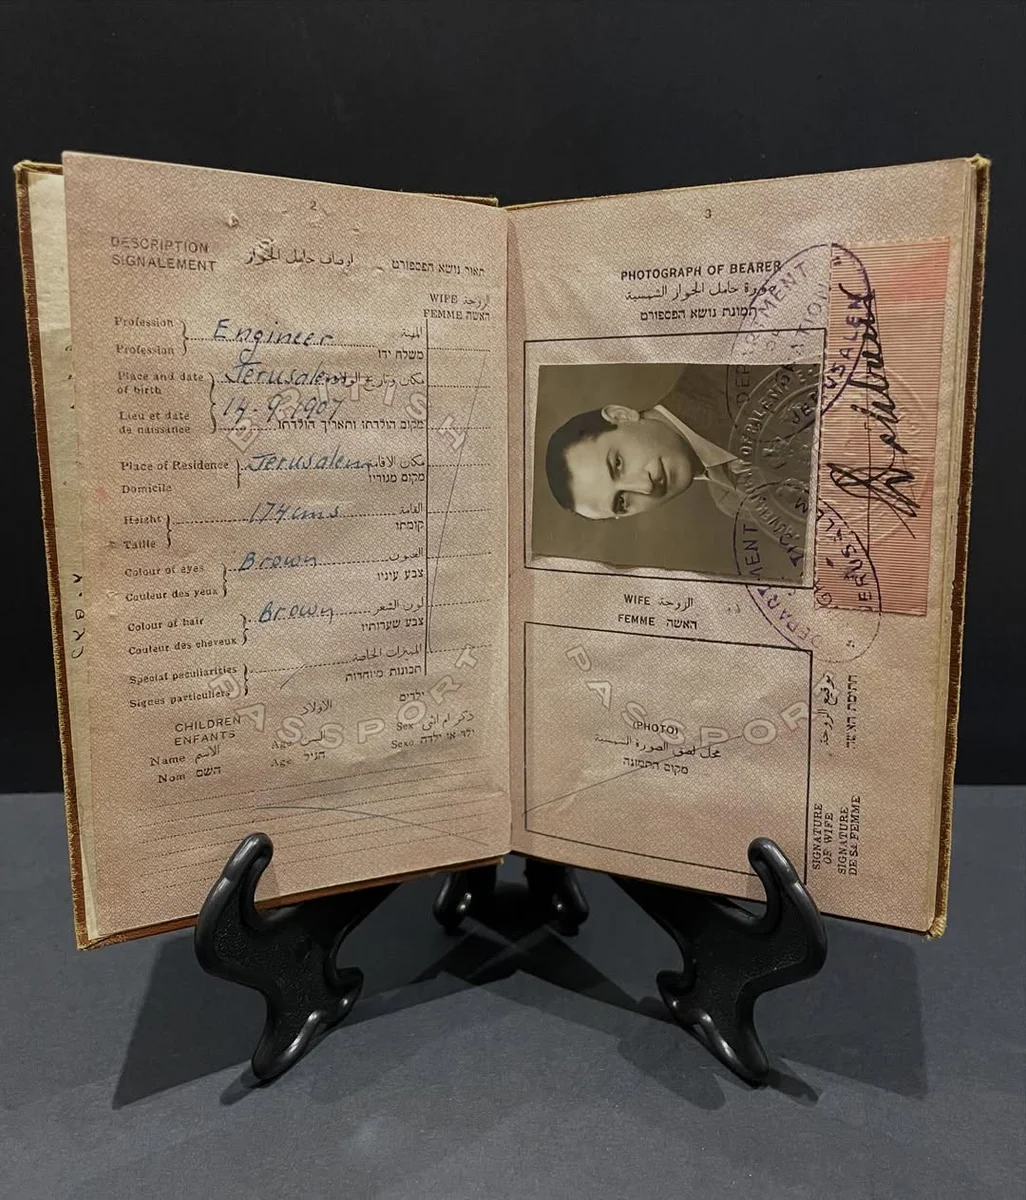 2
DESCRIPTION
SIGNALEMENT
اوصاف حامل الجواز
תאור נושא הפספורט
WIFE الزوجة
FEMME האשה
Profession
Profession
Engineer
المهنة
משלח ידו
Place and date
of birth
Lieu et date
de naissance
Jerusalem
14-9-1907
مكان وتاريخ الولادة
מקום הולדתו ותאריך הולדתו
Place of Residence
Domicile
Jerusalem
مكان الاقامة
מקום מגוריו
Height
Taille
174 cms
القامة
קומתו
Colour of eyes
Couleur des yeux
Brown
العيون
צבע עיניו
Colour of hair
Couleur des cheveux
Brown
لون الشعر
צבע שערותיו
Special peculiarities
Signes particuliers
المميزات الخاصة
תכונות מיוחדות
BRITISH
PASSPORT
CHILDREN
ENFANTS
الاولاد
ילדים
Name الاسم
Nom השם
Age السن
Age הגיל
Sex ذكر ام انثى
Sexe ילד או ילדה
3
PHOTOGRAPH OF BEARER
صورة حامل الجواز الشمسية
תמונת נושא הפספורט
DEPARTMENT OF
JERUSALEM
JERUSALEM
DEPARTMENT
JERUSALEM
WIFE الزوجة
FEMME האשה
PASSPORT
(PHOTO)
محل لصق الصورة الشمسية
מקום התמונה
توقيع الزوجة
חתימת האשה
SIGNATURE
OF WIFE
SIGNATURE
DE SA FEMME